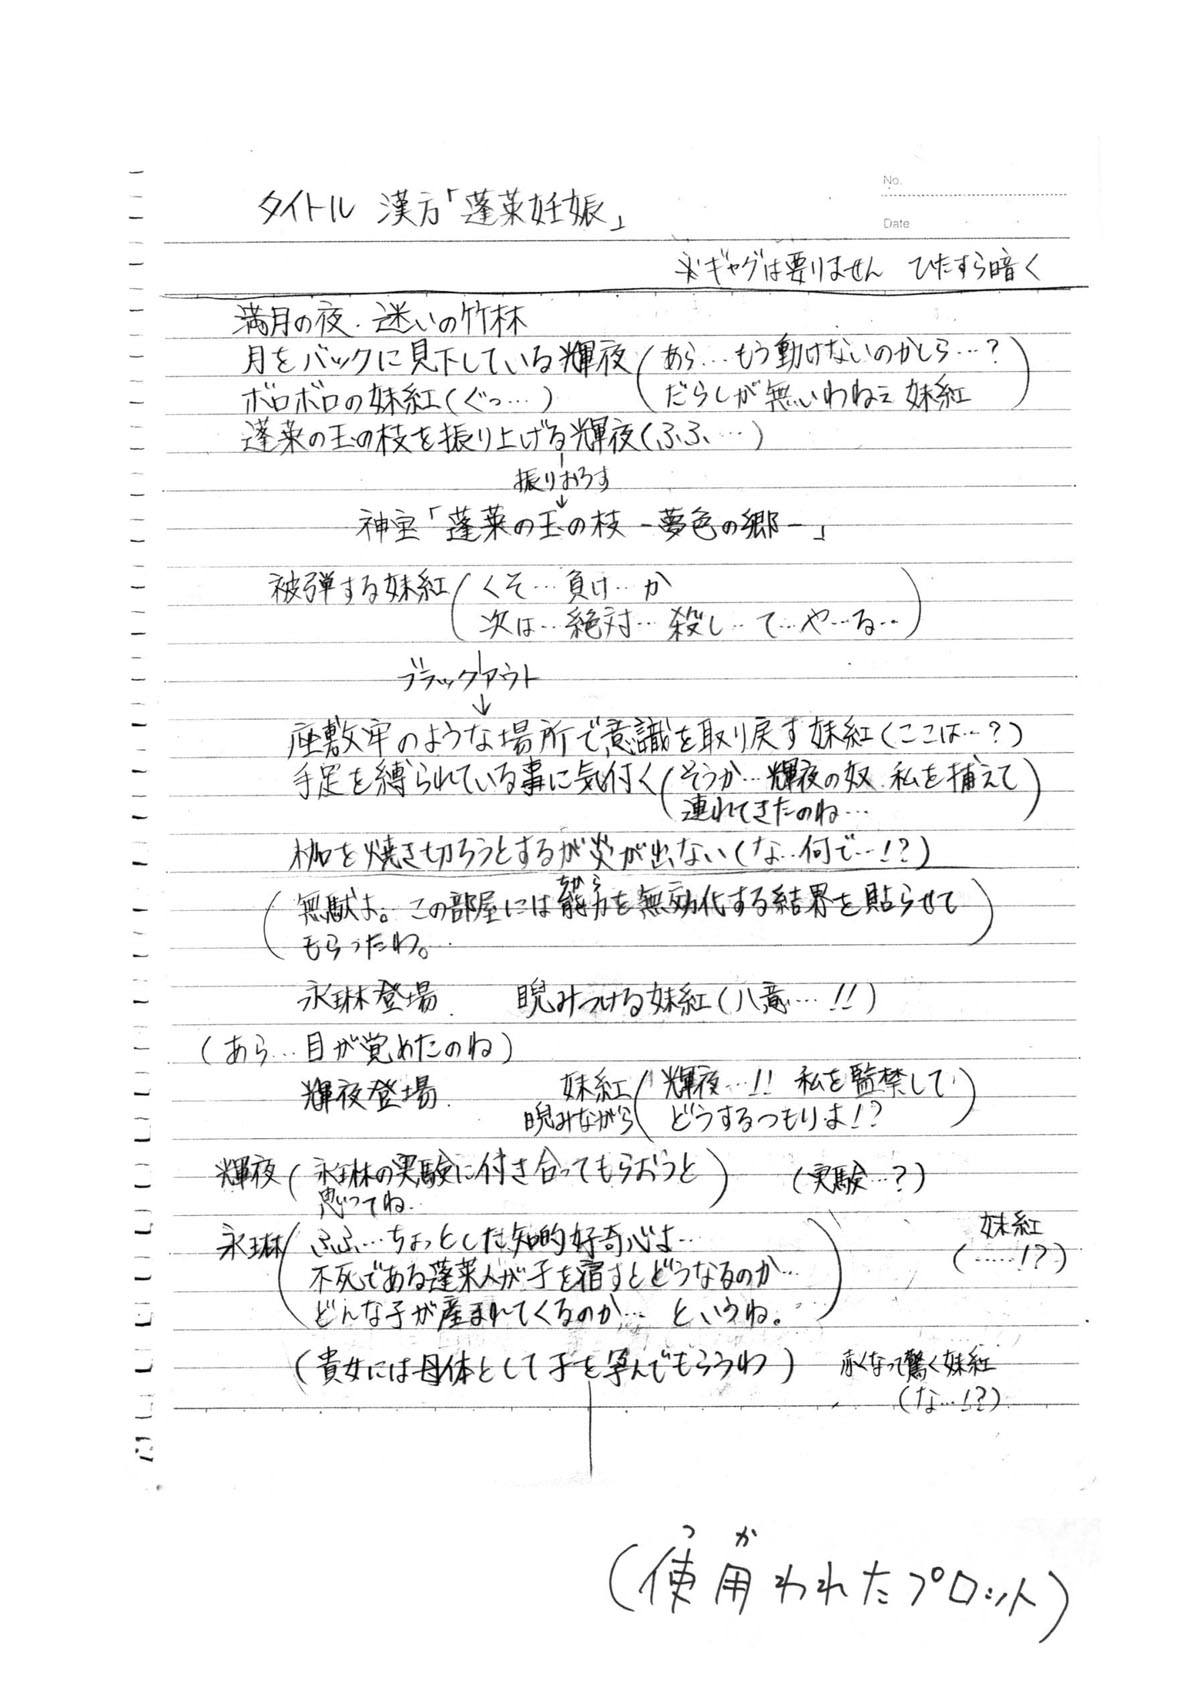 No.
タイトル 漢方「蓬莱妊娠」
Date
※ギャグは要りません ひたすら暗く
満月の夜.迷いの竹林
月をバックに見下している輝夜(あら…もう動けないのかしら…?
だらしが無いわねぇ 妹紅)
ボロボロの妹紅(ぐっ…)
蓬莱の玉の枝を振り上げる輝夜(ふふ…)
振りおろす
神宝「蓬莱の玉の枝 -夢色の郷-」
被弾する妹紅(くそ…負け…か
次は…絶対…殺し…て…や…る…)
ブラックアウト
座敷牢のような場所で意識を取り戻す妹紅(ここは…?)
手足を縛られている事に気付く(そうか…輝夜の奴.私を捕えて
連れてきたのね…)
枷を焼き切ろうとするが炎が出ない(な…何で…!?)
(無駄よ。この部屋には能力を無効化する結界を貼らせて
ちから
もらったわ。)
永琳登場. 睨みつける妹紅(八意…!!)
(あら…目が覚めたのね)
輝夜登場. 妹紅 睨みながら(輝夜…!! 私を監禁して
どうするつもりよ!?)
輝夜(永琳の実験に付き合ってもらおうと
思ってね…) (実験…?)
永琳(ふふ…ちょっとした知的好奇心よ…
不死である蓬莱人が子を宿すとどうなるのか…
どんな子が産まれてくるのか… というね。)
妹紅
(……!?)
(貴女には母体として子を孕んでもらうわ) 赤くなって驚く妹紅
(な…!?)
つか
(使用われたプロット)